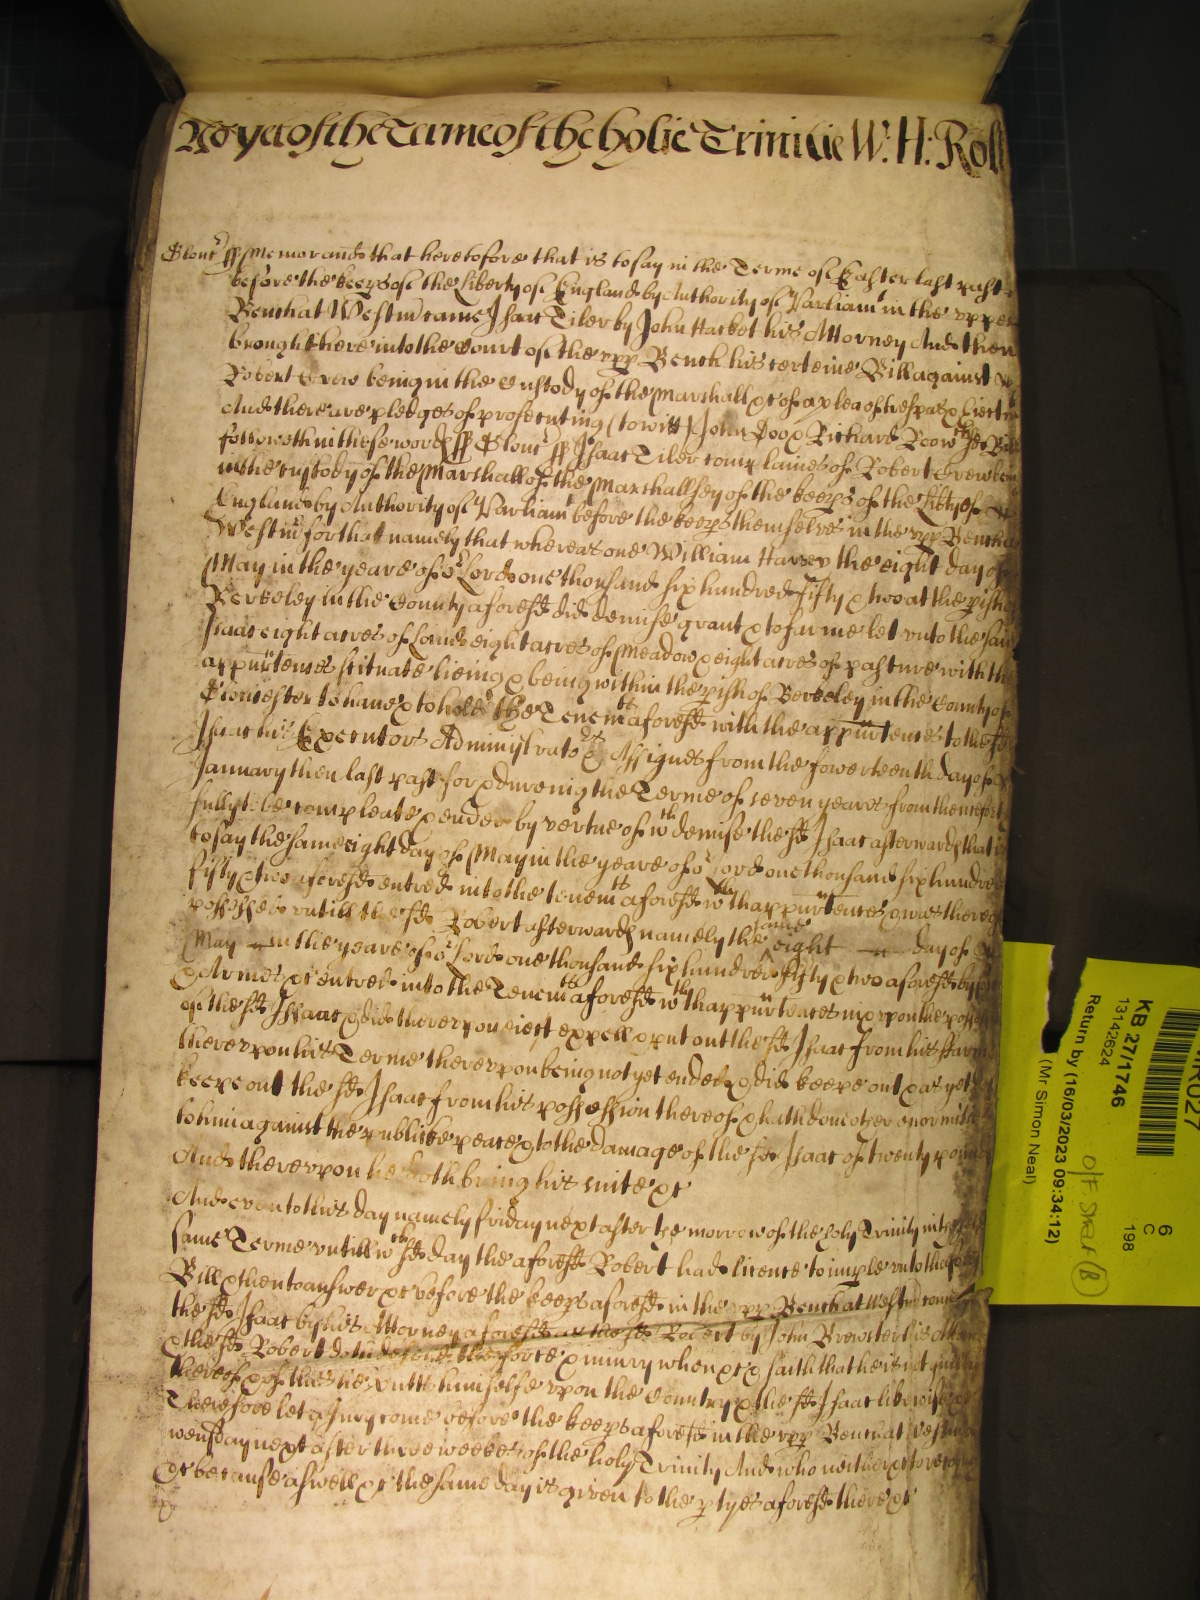 yet of the Terme of the holie Trinitie W: H: Roll
Glouc ss Memorand that heretofore that is to say in the Terme of Easter last past
before the keeps of the Liberty of England by Authority of Parliamt in the upper
Bench at Westm came Isaac Tiler by John Hacket his Attorney And then
brought here into the Court of the upp Bench his certeine Bill against
Robert Trew being in the Custody of the Marshall &c of a plea of trespas & Eiectm
And there are pledges of prosecuting (to witt) John Doo & Richard Roo wch sd Bill
followeth in these words ss Glouc ss Isaac Tiler complaines of Robert Trew being
in the custody of the Marshall of the Marshallsey of the keeps of the Libty of
England by Authority of Parliamt before the keeps themselves in the upp Bench at
Westm for that namely that whereas one William Harvey the eight day of
May in the yeare of or Lord one thousand six hundred fifty & two at the pish of
Berkeley in the County aforesd did demise grant & to farme let unto the said
Isaac eight acres of Land eight acres of Meadow & eight acres of pasture with the
appurtences scituate lieing & being within the pish of Berkeley in the County of
Gloucester to have & to hold the Tenemts aforesd with the appurtences to the sd
Isaac his Executors Administrators & Assignes from the fowerteenth day of
January then last past for & dureing the Terme of seven yeares from thence forth
fully to be compleate & ended by vertue of wch demise the sd Isaac afterwards that is
to say the same eight day of May in the yeare of or Lord one thousand six hundred
fifty & two aforesd entred into the tenemts aforesd wth thappurtences & was thereof
possessed untill the sd Robert afterwards namely the same eight day of
May in the yeare of or Lord one thousand six hundred fifty & two aforesd by force
& Armes &c entred into the Tenemts aforesd wth thappurtences in & upon the possession
of the sd Isaac & did thereupon eiect expell & put out the sd Isaac from his ffarme
thereupon his Terme thereupon being not yet ended & did keepe out & as yet doth
keepe out the sd Isaac from his possession thereof & hath don other enormities
to him against the publicke peace & to the damage of the sd Isaac of twenty pounds
And thereupon he doth bring his suite &c
And even to this day namely friday next after the morrow of the holy Trinity in the
same Terme untill wch sd day the aforesd Robert had licence to imple unto the aforesd
Bill & then to answer &c before the keeps aforesd in the upp Bench at Westm come
the sd Isaac by his Attorney aforesd as the sd Robert by John Brewster his Attorney
& the sd Robert doth defend the force & iniury when &c & saith that he is not guilty
thereof & of this he putts himselfe upon the Country & the sd Isaac likewise &c
Therefore let a Jury come before the keeps aforesd in the upp Bench at Westm on
wensday next after three weekes of the holy Trinity And who neither &c to recognize
&c because aswell &c the same day is given to the ptyes aforesd there &c
KB 27/1746
13142624
Return by (16/03/2023 09:34:12)
(Mr Simon Neal)
6
C
198